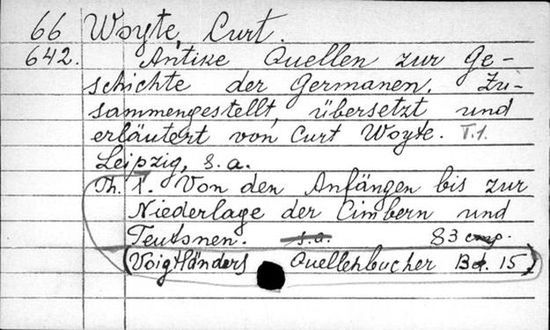 66 Woyte, Curt.
642. Antike Quellen zur Ge-
schichte der Germanen. Zu-
sammengestellt, übersetzt und
erläutert von Curt Woyte. T.1.
Leipzig, s.a.
Th. 1. Von den Anfängen bis zur
Niederlage der Cimbern und
Teutonen. s.a. 83 стр.
(Voigtländers Quellenbücher Bd. 15)